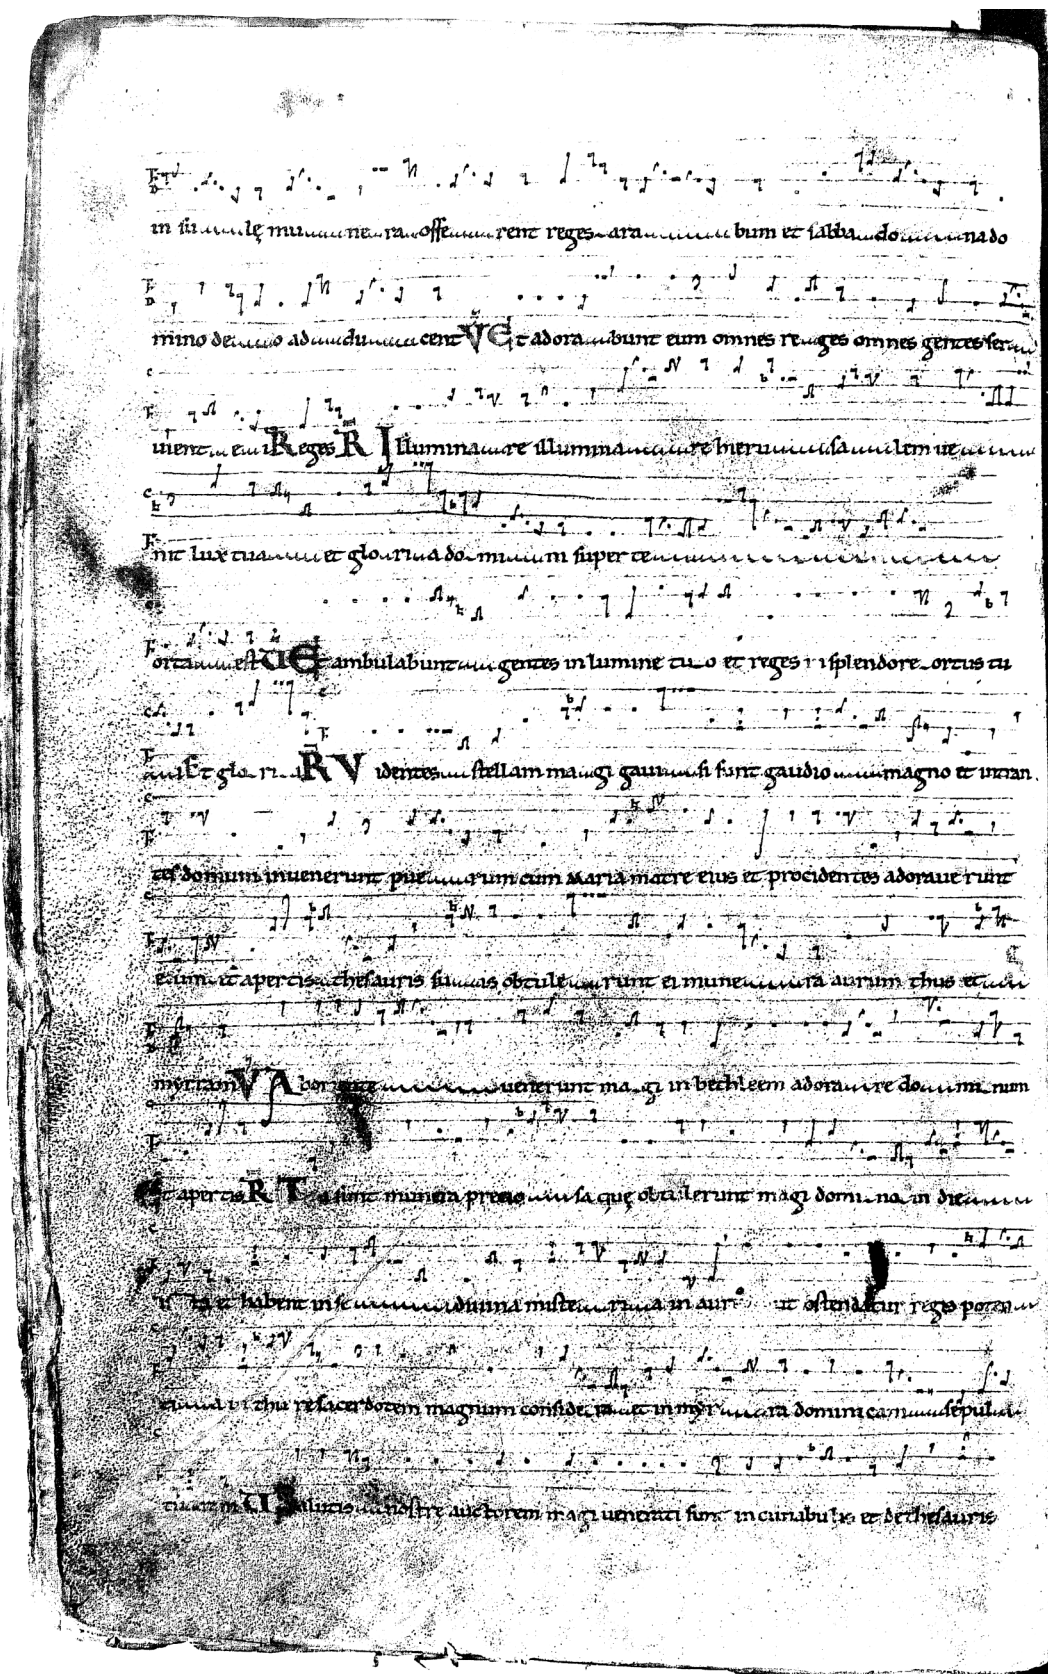 in sulę munera offerent reges arabum et sabba dona do
mino deo adducent V Et adorabunt eum omnes reges omnes gentes ser
vient ei Reges R Illuminare illuminare hierusalem ve
nit lux tua et gloria domini super te
orta est V Et ambulabunt gentes in lumine tuo et reges splendore ortus tu
i Et gloria R Videntes stellam magi gavisi sunt gaudio magno et intran
tes domum invenerunt puerum cum maria matre eius et procidentes adoraverunt
eum et apertis thesauris suis obtulerunt ei munera aurum thus et
myrram V Ab oriente venerunt magi in bethleem adorare dominum
Et apertis R Tria sunt munera preciosa quę obtulerunt magi domino in die
ista et habent in se divina misteria in auro ut ostendatur regis poten
tia in thure sacerdotem magnum considera et in myrra dominicam sepul
turam V Salutis nostre auctorem magi venerati sunt in cunabulis et de thesauris